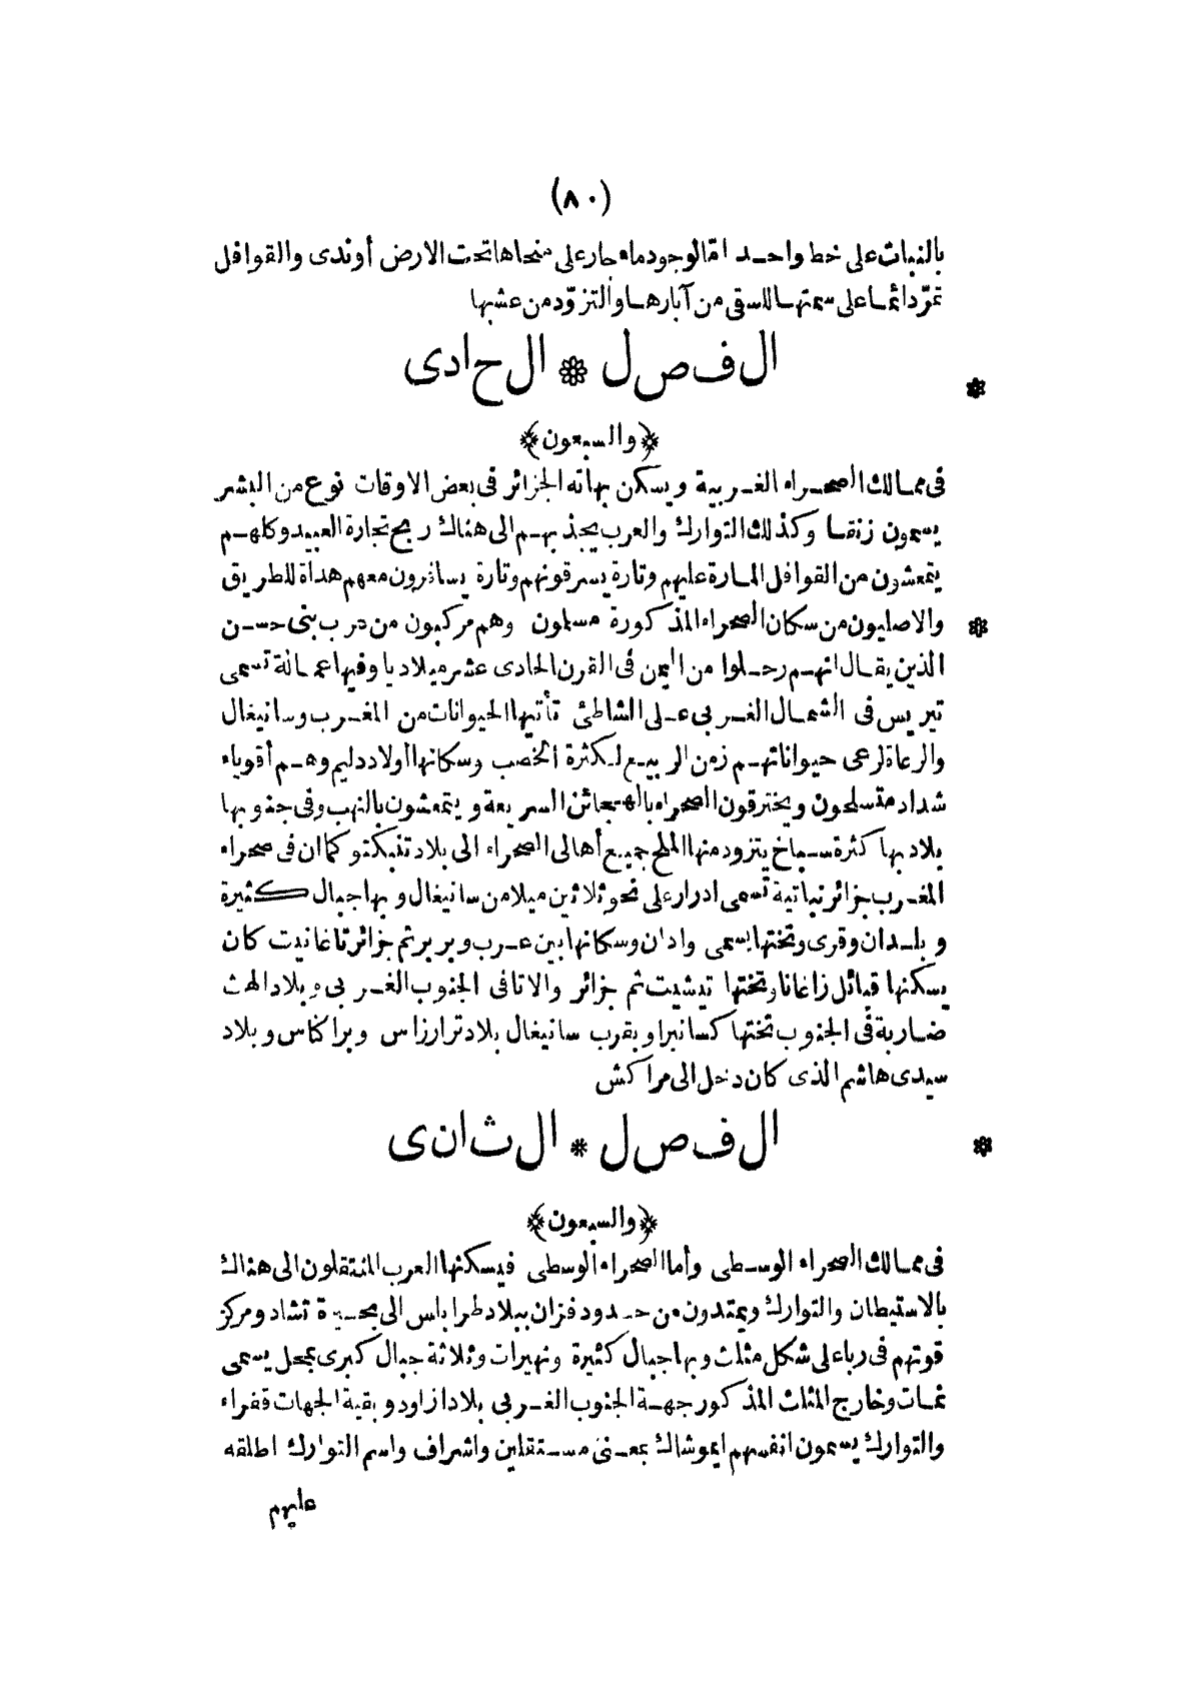 (٨٠)
بالنبات على خط واحد امّا لوجود ماء جار على منحاها تحت الارض أو ندى والقوافل
تمرّ دائما على سمتها للسقى من آبارها والتزوّد من عشبها
الفصل * الحادى
*
﴿والسبعون﴾
فى ممالك الصحراء الغربية ويسكن بهاته الجزائر فى بعض الاوقات نوع من البشر
يسمون زنقا وكذلك التوارك والعرب يجذبهم الى هناك ربح تجارة العبيد وكلهم
يتمعشون من القوافل المارة عليهم وتارة يسرقونهم وتارة يسافرون معهم هداة للطريق
والاصليون من سكان الصحراء المذكورة مسلمون وهم مركبون من درب بنى حسن *
الذين يقال انهم رحلوا من اليمن فى القرن الحادى عشر ميلاديا وفيها عمالة تسمى
تيريس فى الشمال الغربى على الشاطئ تأتيها الحيوانات من المغرب وسانيغال
والرعاة لرعى حيواناتهم زمن الربيع لكثرة الخصب وسكانها أولاد دليم وهم أقوياء
شداد متسلحون ويخترقون الصحراء بالهجائن السريعة ويتمعشون بالنهب وفى جنوبها
بلاد بها كثرة سباخ يتزود منها الملح جميع أهالى الصحراء الى بلاد تنبكتو كما ان فى صحراء
المغرب جزائر نباتية تسمى ادرار على نحو ثلاثين ميلا من سانيغال وبها جبال كثيرة
وبلدان وقرى وتختها يسمى وادان وسكانها بين عرب وبربر ثم جزائر تاغانيت كان
يسكنها قبائل زاغانا وتختها تيشيت ثم جزائر والاتا فى الجنوب الغربى وبلاد الهث
ضاربة فى الجنوب تختها كسانبرا وبقرب سانيغال بلاد ترارزاس وبراكناس وبلاد
سيدى هاشم الذى كان دخل الى مراكش
الفصل * الثانى
*
﴿والسبعون﴾
فى ممالك الصحراء الوسطى وأما الصحراء الوسطى فيسكنها العرب المنتقلون الى هناك
بالاستيطان والتوارك ويمتدون من حدود فزان ببلاد طرابلس الى بحيرة تشاد ومركز
قوتهم فى رباء على شكل مثلث وبها جبال كثيرة ونهيرات وثلاثة جبال كبرى بمحل يسمى
غات وخارج المثلث المذكور جهة الجنوب الغربى بلاد ازاود وبقية الجهات قفراء
والتوارك يسمون انفسهم ايموشاك بمعنى مستقلين واشراف واسم التوارك اطلقه
عليهم